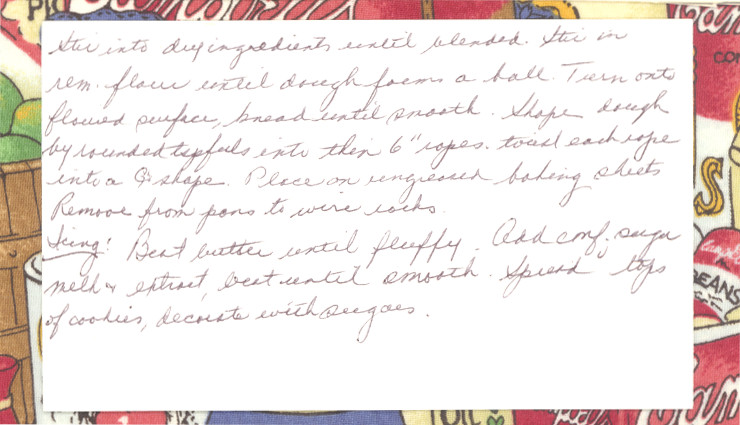 Stir into dry ingredients until blended. Stir in
rem. flour until dough forms a ball. Turn onto
floured surface, knead until smooth. Shape dough
by rounded tspfuls into thin 6" ropes. twist each rope
into a shape. Place on ungreased baking sheets
Remove from pans to wire racks.
Icing: Beat butter until fluffy. Add conf. sugar
milk & extract, beat until smooth. Spread tops
of cookies, decorate with sugars.